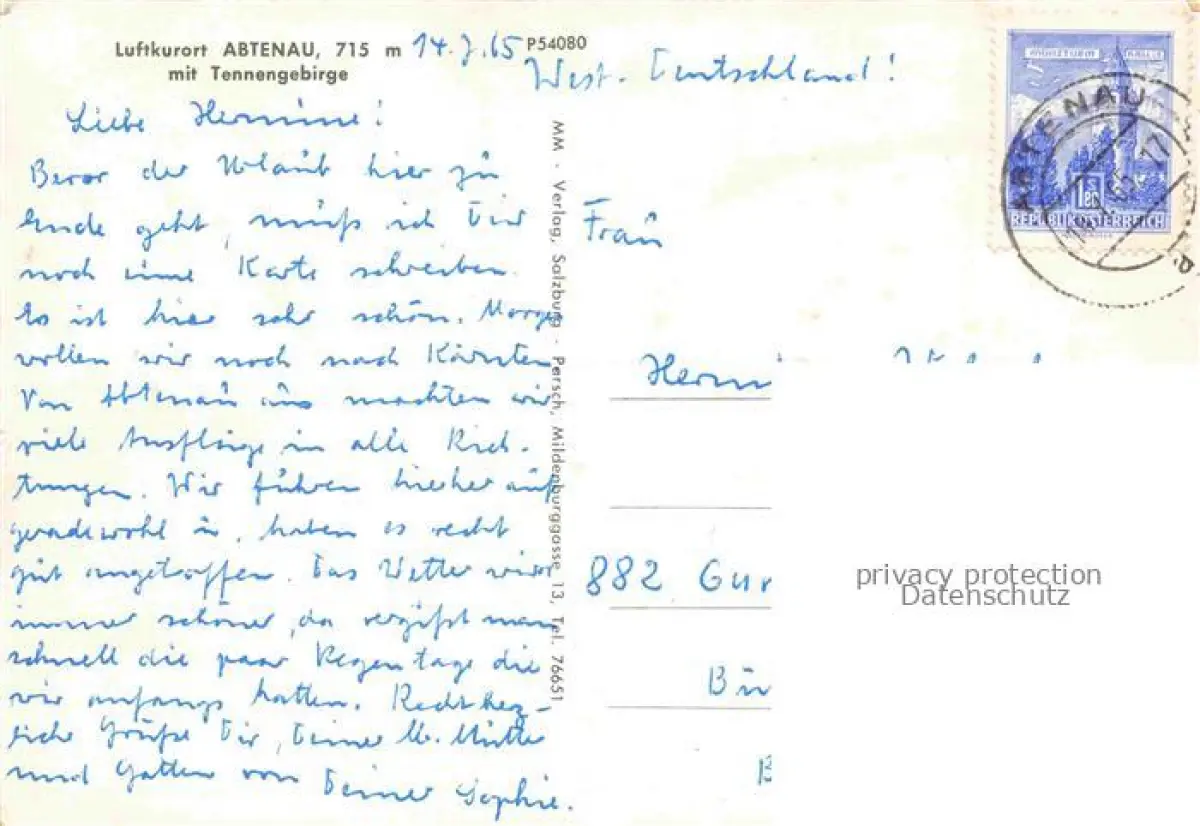 Luftkurort ABTENAU, 715 m
mit Tennengebirge
14.7.65
P54080
West-Deutschland!
Liebe Hermine!
Bevor der Urlaub hier zu
Ende geht, muß ich Dir
noch eine Karte schreiben.
Es ist hier sehr schön. Morgen
wollen wir noch nach Kärnten
Von Abtenau aus machten wir
viele Ausflüge in alle Rich-
tungen. Wir fuhren hieher auf
geradewohl u. haben es recht
gut angetroffen. Das Wetter wird
immer schöner, da vergißt man
schnell die paar Regentage die
wir anfangs hatten. Recht herz-
liche Grüße Dir, Deiner lb. Mutter
und Gatten von Deiner Sophie.
MM - Verlag, Salzburg - Parsch, Mildenburggasse 13, Tel. 76651
Frau
Hermi
882 Gun
Bu
B
REPUBLIK ÖSTERREICH
ABTENAU
privacy protection
Datenschutz